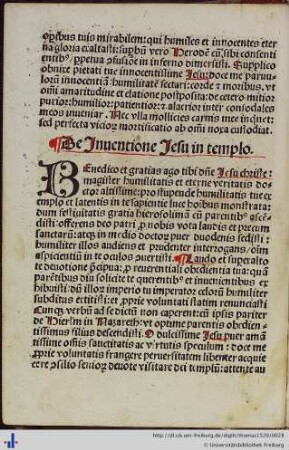 opibus tuis mirabilem: qui humiles et innocentes eter
na gloria exaltasti: suphū vero Herodē cū sibi consenti
entibꝰ ꝑpetua ꝯfusiōe in inferno dimersisti. Supplico
obnixe pietati tue innocentissime Jesu: doce me paruu
lorum innocentiā: humilitatē sectari: corde ⁊ moribus. vt
omī amaritudine et elatione postposita: de cetero nitior
purior: humilior: patientior: ⁊ alacrior inter consodales
meos inueniar. Nec vlla mollicies carnis me inquinet:
sed perfecta vicioꝝ mortificatio ab omī noxa custodiat.
De Inuentione Jesu in templo.
BEnedico et gratias ago tibi dn̄e Jesu christe:
magister humilitatis et eterne veritatis do
ctor altissime: pro stupende humilitatis tue ex
emplo et latentis in te sapientie luce hoībus monstrata:
dum festiuitatis gratia hierosolimā cū parentibꝰ asce
disti: offerens deo patri ꝓ nobis vota laudis et precum
humiliter illos audiens et prudenter interrogans. oīm
aspicientiū in te oculos ꝑuertisti. Laudo et superalto
te deuotione ꝑcipua: ꝓ reuerentiali obedientia tua: quā
parētibus diu solicite te querentibꝰ et inuenientibus ex
hibuisti: dū illoꝝ imperio tu imperator celorū humiliter
subditus extitisti: et ꝓprie voluntati statim renunciasti
Cunqꝫ verbū ad se dictū non caperent: cū ipsis pariter
de Hierlm in Nazareth: vt optime parentis obedien
tissimus filius descendisti. O dulcissime Jesu puer aman
tissime oīnis sanctitatis ac virtutis speculum: doce me
ꝓprie voluntatis frangere peruersitatem libenter acquie
cere ꝯsilio senioꝝ: deuote visitare dei templū: attente au
http://dl.ub.uni-freiburg.de/diglit/thomas1520/0028
© Universitätsbibliothek Freiburg